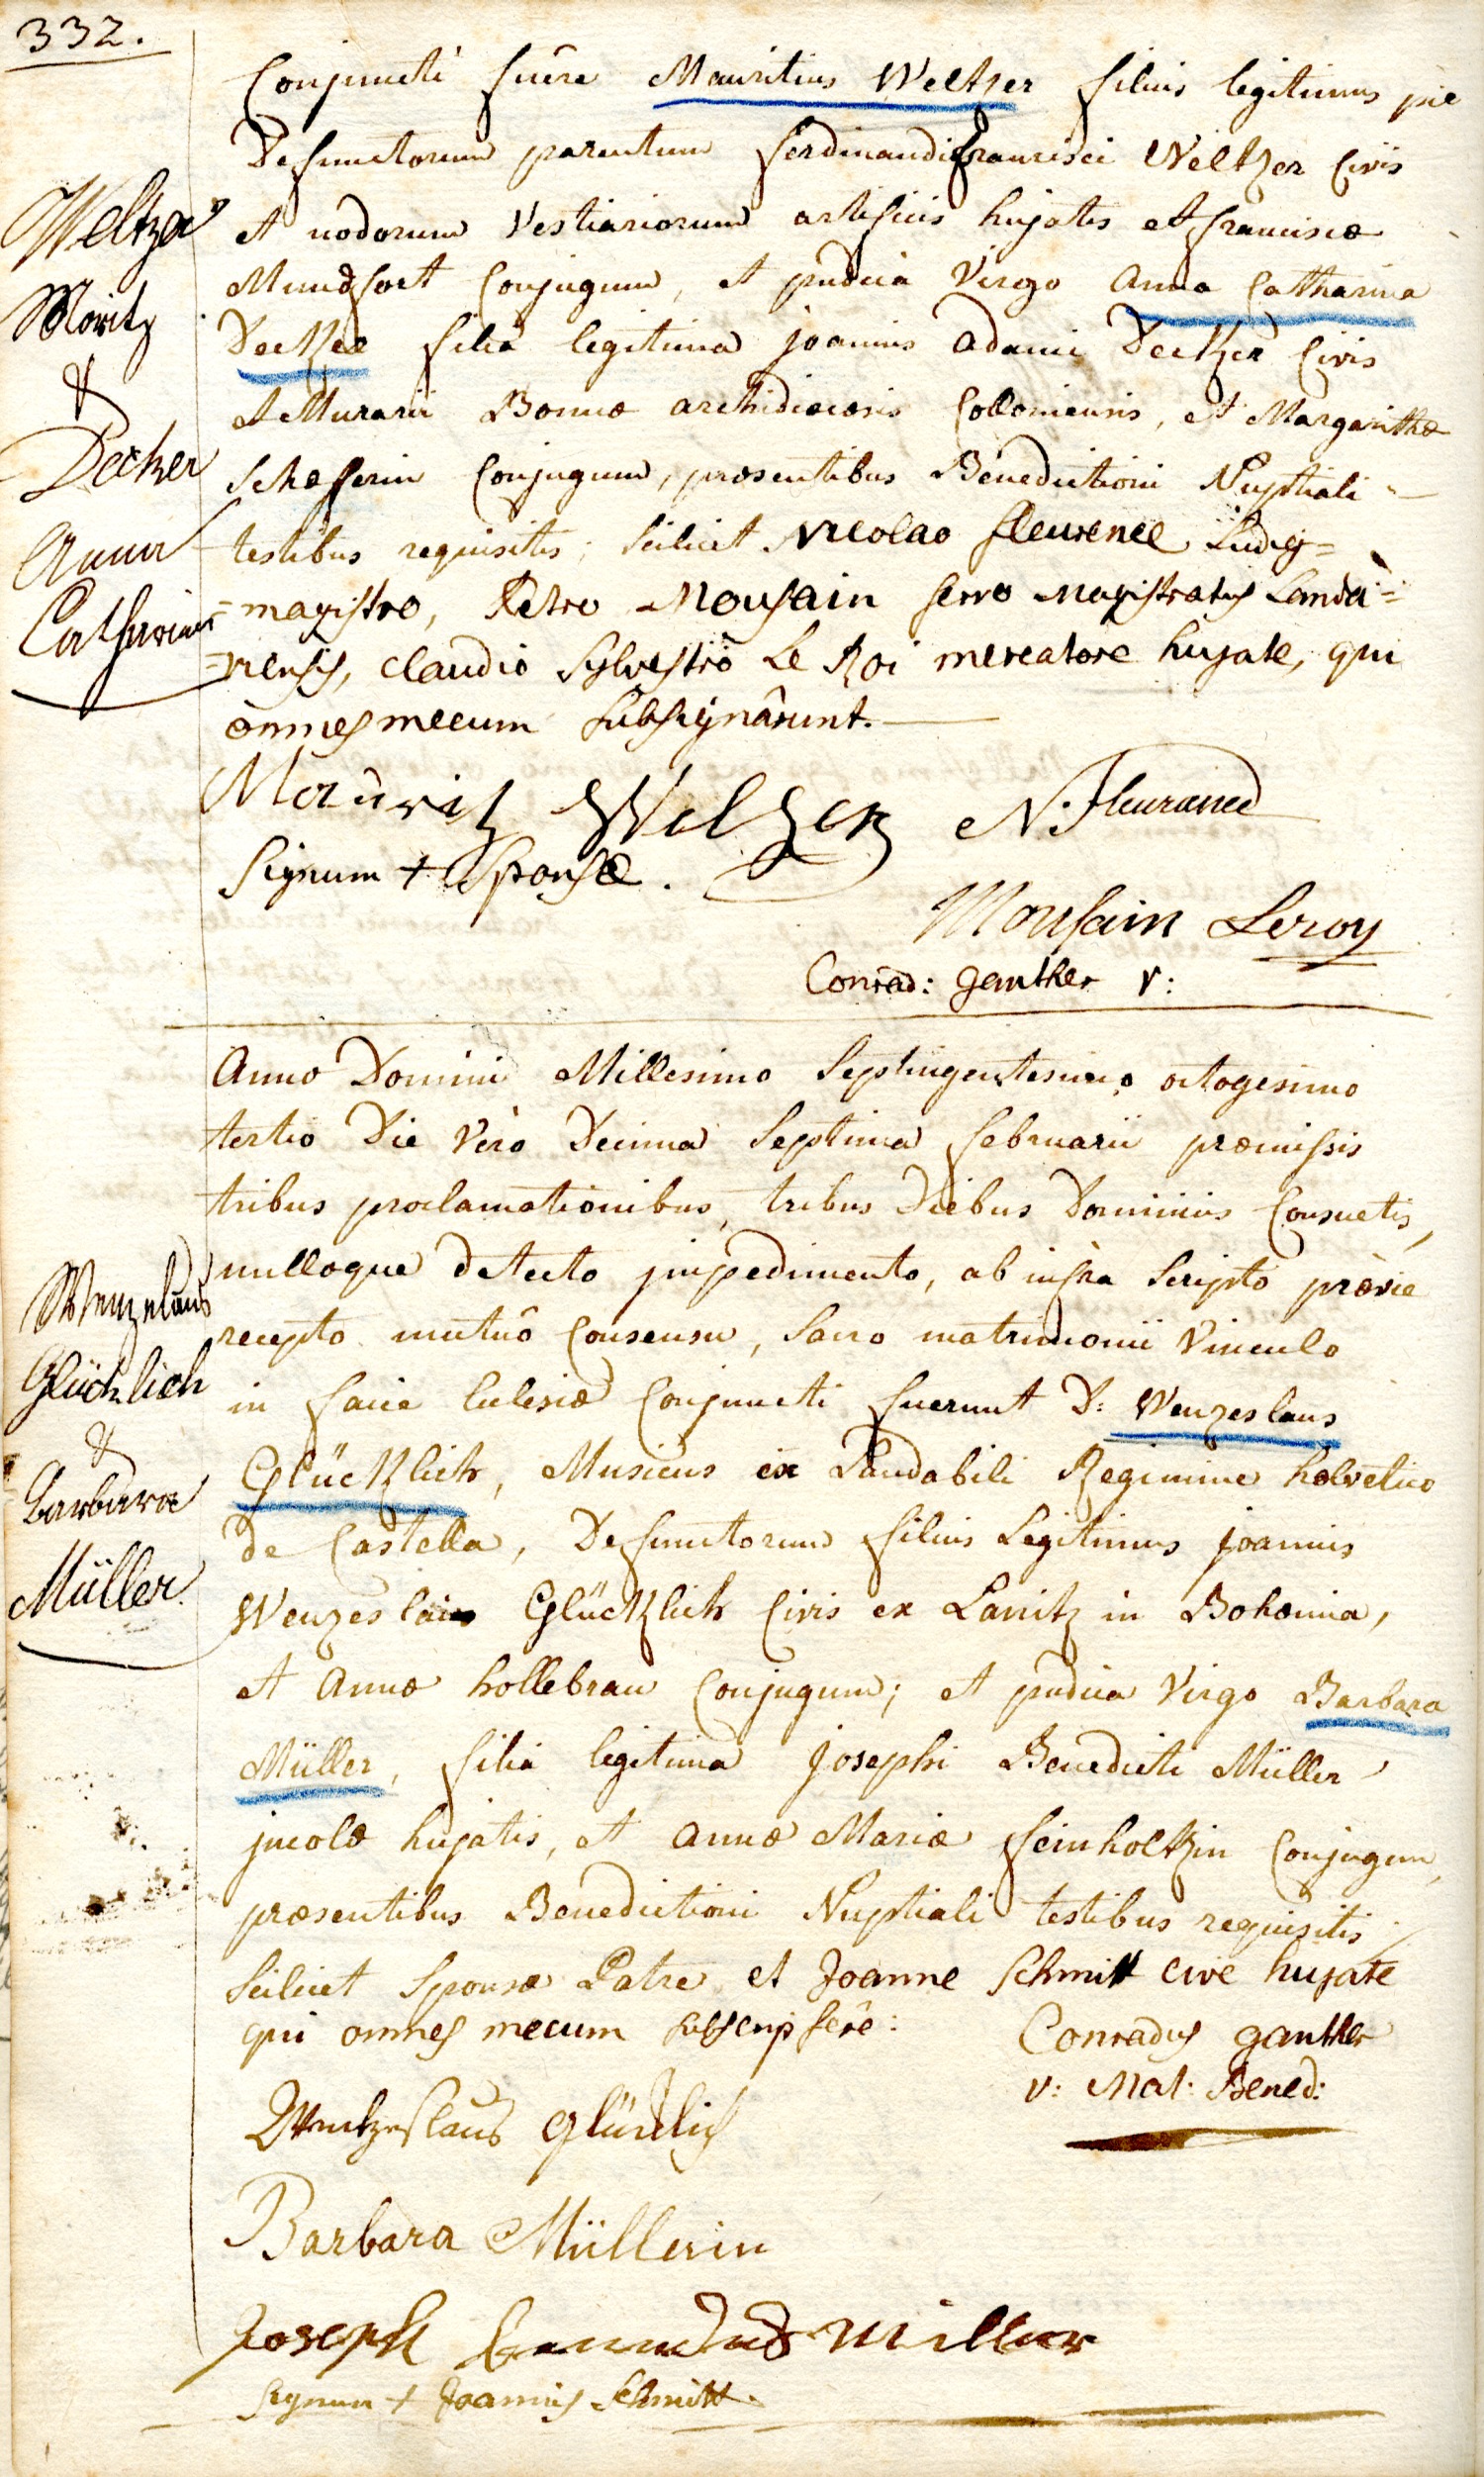 332.
Conjuncti fuêre Mauritius Weltzer filius legitimus pie
Defunctorum parentum ferdinandi francisci Weltzer Civis
et nodorum Vestiariorum artificis hujatis et franciscæ
Conjugum, et pudica Virgo Anna Catharina
filia legitima joannis adami Deckher Civis
et Murarii Bonnæ archidiœcesis Colloniensis, et Margarithæ
Schefferin Conjugum, præsentibus Benedictioni Nuptiali
testibus requisitis, scilicet Nicolao fleurence Ludi-
=magistro, Petro Mousain servo magistratus Landa=
=viensis, Claudio Sylvestro Le Roi mercatore hujate, qui
omnes mecum subsignârunt.
Weltzer
Moritz
&
Decker
Anna
Catharina
Mauritz Welzer
N. Fleurance
Signum + Sponsæ.
Mousain Leroy
Conrad: ganther v:
Anno Domini Millesimo Septingentesimo octogesimo
tertio Die Vero Decima Septima februarii præmissis
tribus proclamationibus, tribus Diebus Dominicis Consuetis,
nulloque detecto jmpedimento, ab infra scripto prævie
recepto mutuô Consensu, Sacro matrimonii Vinculo
in facie Ecclesiæ Conjuncti fuerunt D: Wenzeslaus
Glücklich, Musicus ex Laudabili Regimine helvetico
de Castella, Defunctorum filius Legitimus joannis
Wenzeslai Glücklich Civis ex Lanitz in Bohœmia,
et Annæ hollebrau Conjugum; et pudica Virgo Barbara
Müller, filia legitima josephi Benedicti Müller
jncolæ hujatis, et annæ Mariæ feinholtzin Conjugum,
præsentibus Benedictioni Nuptiali testibus requisitis
Scilicet Sponsæ Patre et Joanne Schmitt cive hujate
qui omnes mecum subscripsêre:
Wenzelaus
Glücklich
&
Barbara
Müller
Conradus ganther
v: Mat: Bened:
Wentzeslaus Glücklich
Barbara Müllerin
Joseph Miller
Signum + Joannis Schmitt.